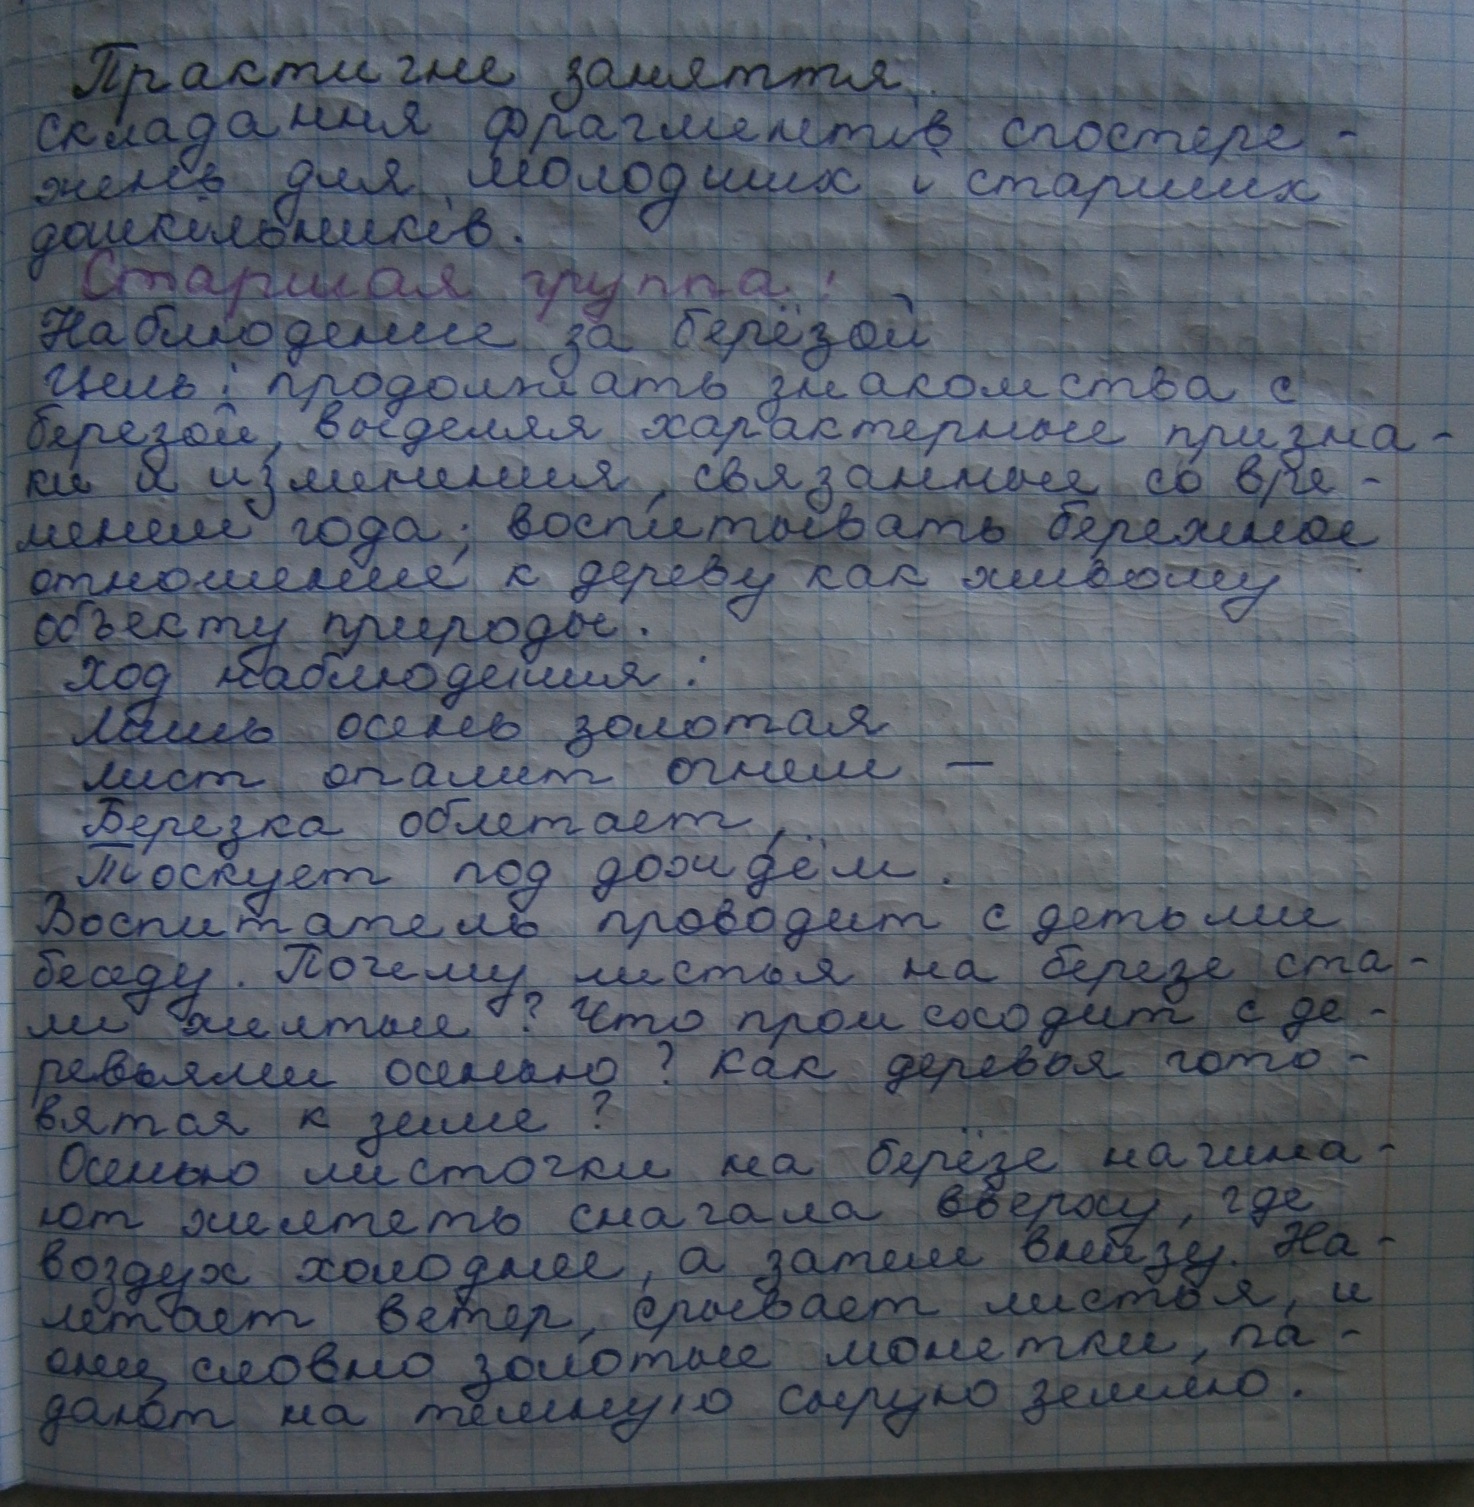 Практичне заняття.
складання фрагментів спостере-
жень для молодших і старших
дошкільників.
Старшая группа:
Наблюдение за берёзой
Цель: продолжать знакомства с
березой, выделяя характерные призна-
ки и изменения, связанные со вре-
менем года; воспитывать бережное
отношение к дереву как живому
объекту природы.
Ход наблюдения:
Лишь осень золотая
лист опалит огнем —
Березка облетает,
Тоскует под дождём.
Воспитатель проводит с детьми
беседу. Почему листья на березе ста-
ли желтые? Что происходит с де-
ревьями осенью? Как деревья гото-
вятся к зиме?
Осенью листочки на берёзе начина-
ют желтеть сначала вверху, где
воздух холоднее, а затем внизу. На-
летает ветер, срывает листья, и
они, словно золотые монетки, па-
дают на темную сырую землю.